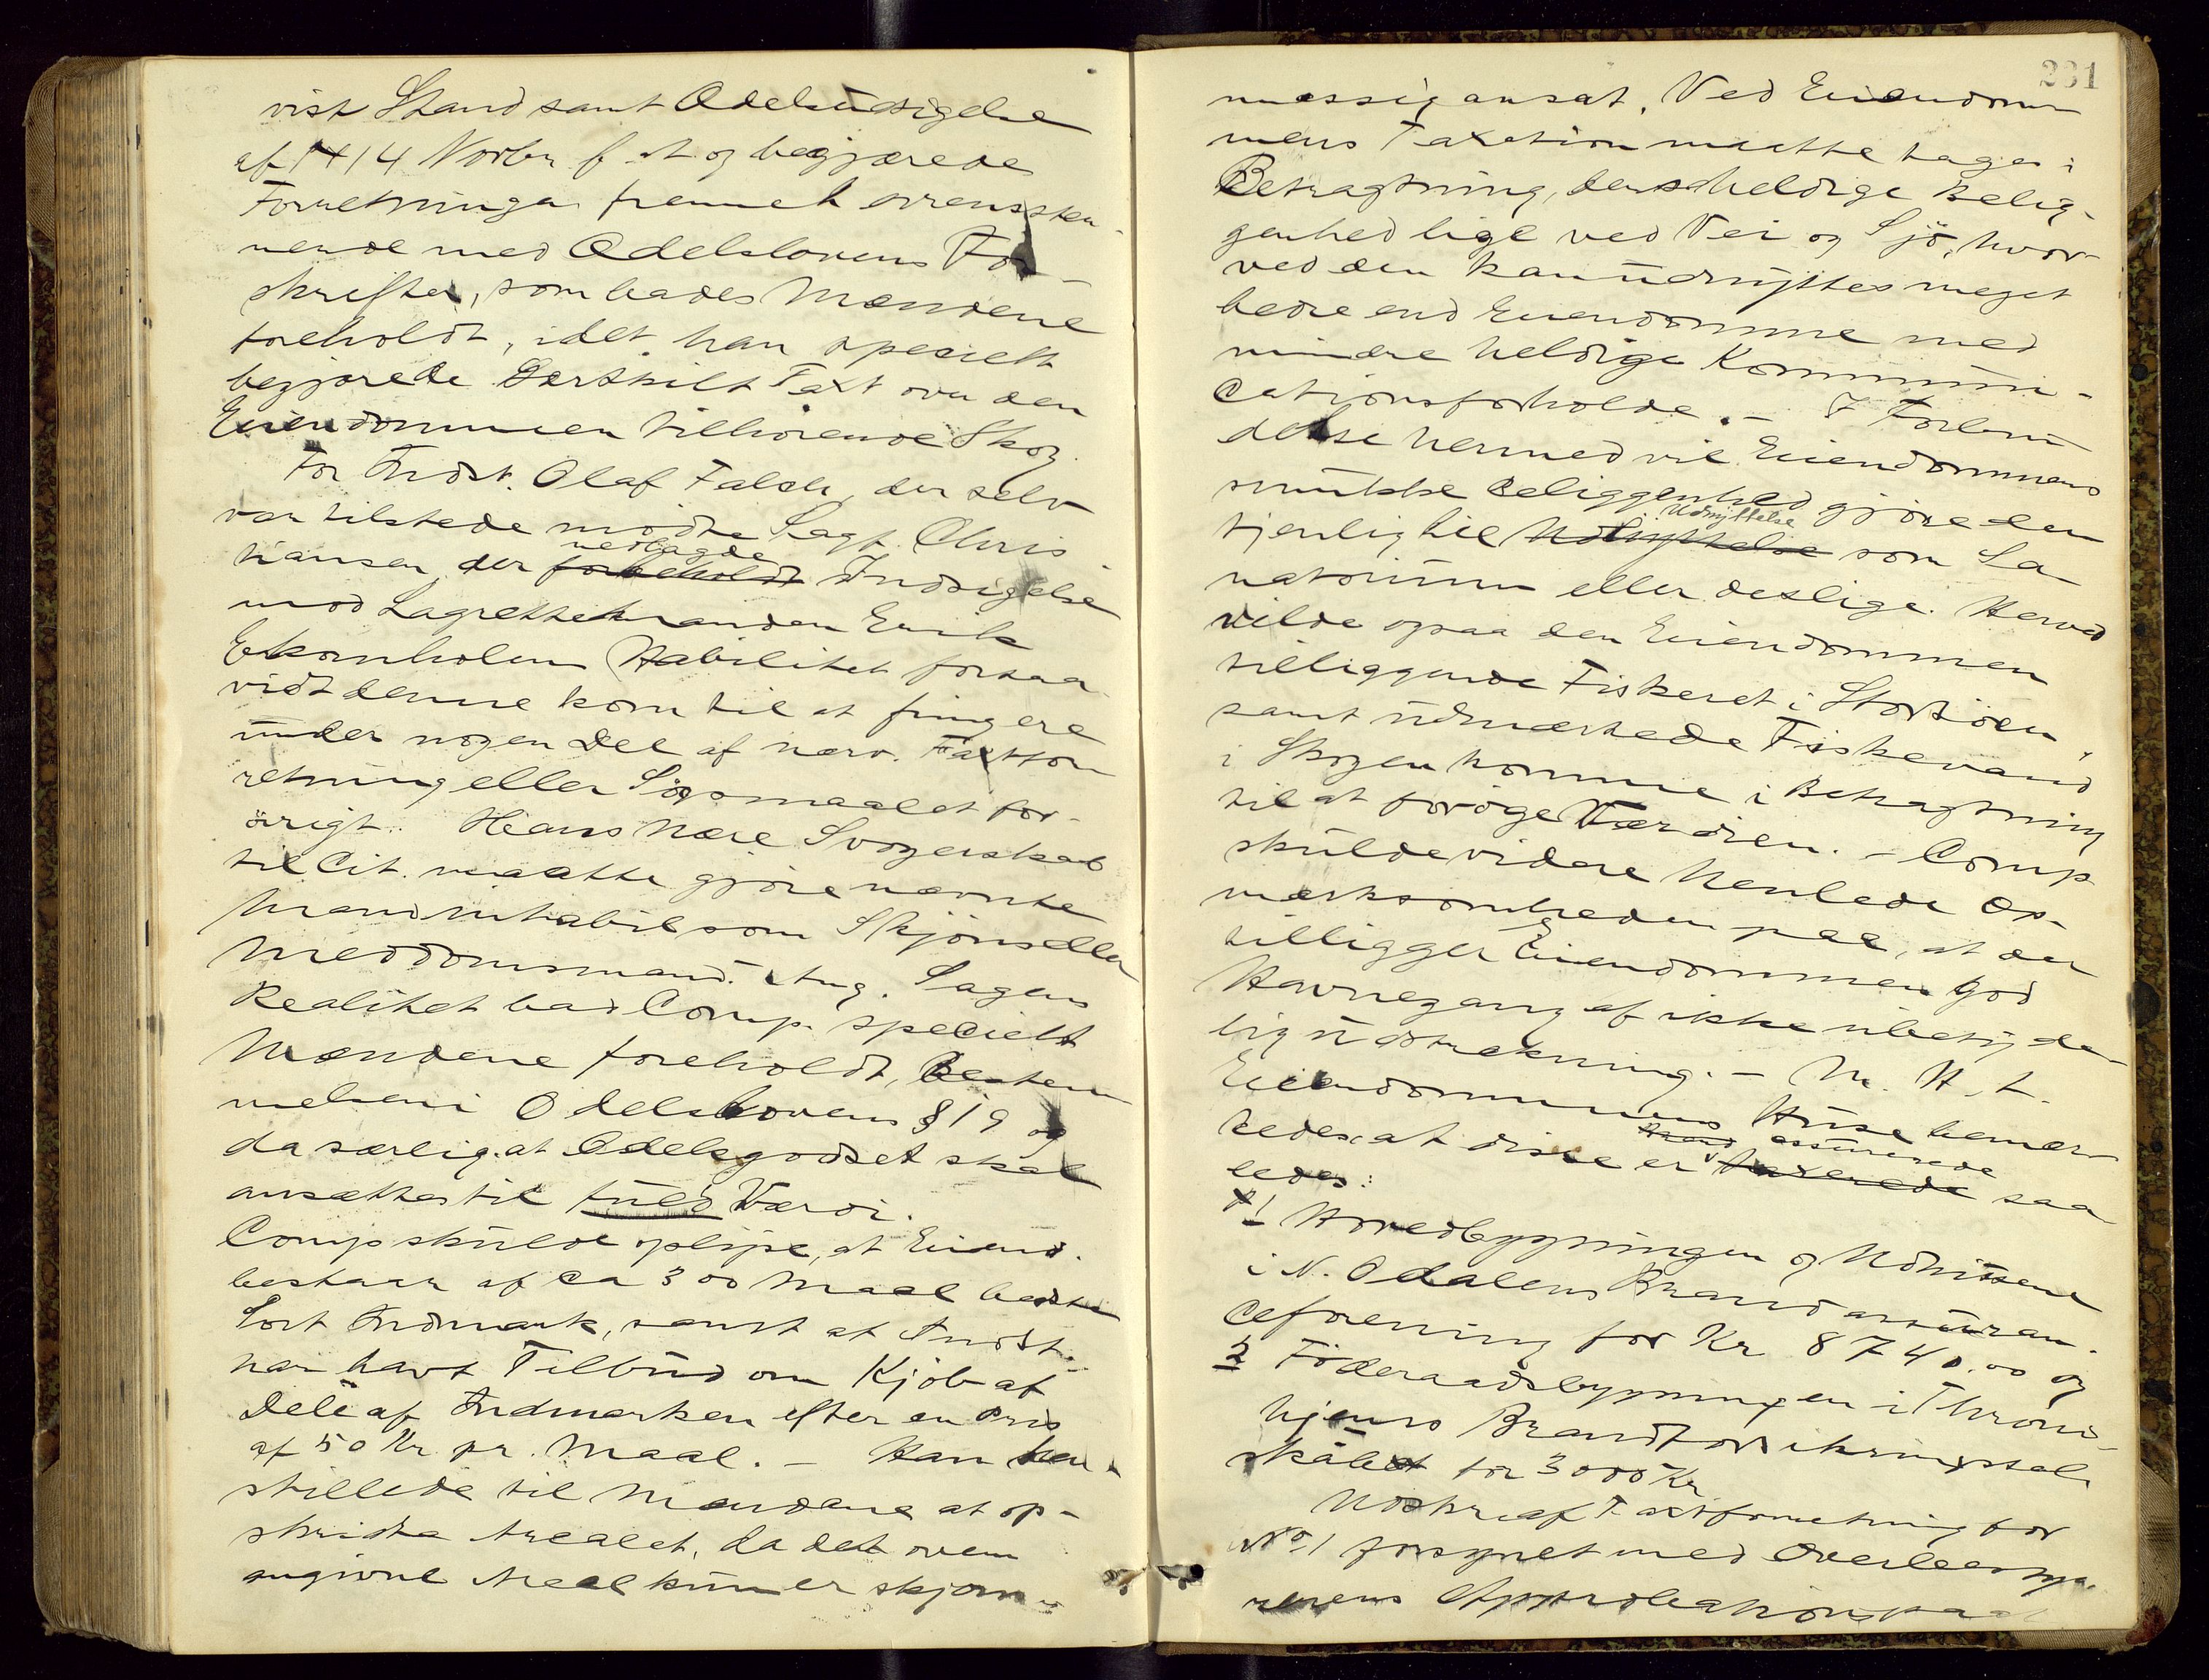 visk Stand samt Odelsudsigelse
af 14 Novbr f. A. og begjærede
Forretningen fremmet overensstem-
mende med Odelslovens For-
skrifter, som bades Mændene
foreholdt, idet han specielt
begjærede Særskilt Taxt over den
Eiendommen tilhørende Skog.
For Indst. Olaf Falch, der selv
var tilstede mødte Sagf. Chris
hansen, der forbeholdt nedlagde Indsigelse
mod Lagrettemanden Erik
Ekornholens Habilitet forsaa-
vidt denne kom til at fungere
under nogen Del af nærv. Taxtfor
retning eller Søgsmaalet for-
øvrigt. Hans nære Svogerskab
til Cit. maatte gjøre nævnte
Mand inhabil som Skjøns eller
Meddomsmand. Ang. Sagens
Realitet bad Comp. specielt
Mændene foreholdt, Bestem
melsen i Odelslovens § 19 og
da særlig at Odelsgodset skal
ansættes til fuld Værdi.
Comp skulde oplyse, at Eiend.
bestaar af ca 300 Maal bedste
Sort Indmark, samt at Indst.
har havt Tilbud om Kjøb af
Dele af Indmarken efter en Pris
af 50 Kr. pr. Maal. – Han hen-
stillede til Mændene at op-
skridte Arealet, da det oven
angivne Areal kun er skjøns-
231
mæssig ansat. Ved Eiendom
mens Taxation maatte tages i
Betragtning, dens heldige Belig-
genhed lige ved Vei og Sjö, hvor-
ved den kan udnyttes meget
bedre end Eiendomme med
mindre heldige Kommuni-
cationsforholde. – I Forbin
delse hermed vil Eiendommens
smukke Beliggenhed gjøre den
tjenlig til Udnyttelse som Sa-
natorium eller deslige. Herved
vilde ogsaa den Eiendommen
tilliggende Fiskeret i Storsöen,
samt udmærkede Fiskevand
i Skogen komme i Betragtning
til at forøge Værdien. – Comp
skulde videre henlede Op-
mærksomheden paa, at der
tilligger Eiendommen god
Havnegang af ikke ubetyde-
lig udstrækning. – M. H. t.
Eiendommens Huse bemær-
kedes at disse er taxerede Brand assurerede saa
ledes:
1 Hovedbygningen og Udhusene
i N. Odalens Brandassuran-
ceforening for Kr 8740.00 og
2 Föderaadsbygningen i Thron-
hjems Brandforsikringssel-
skabet for 3000 Kr
Udskrift af Taxtforretning for
No 1 forsynet med Overlensma
rerens Approbation paa